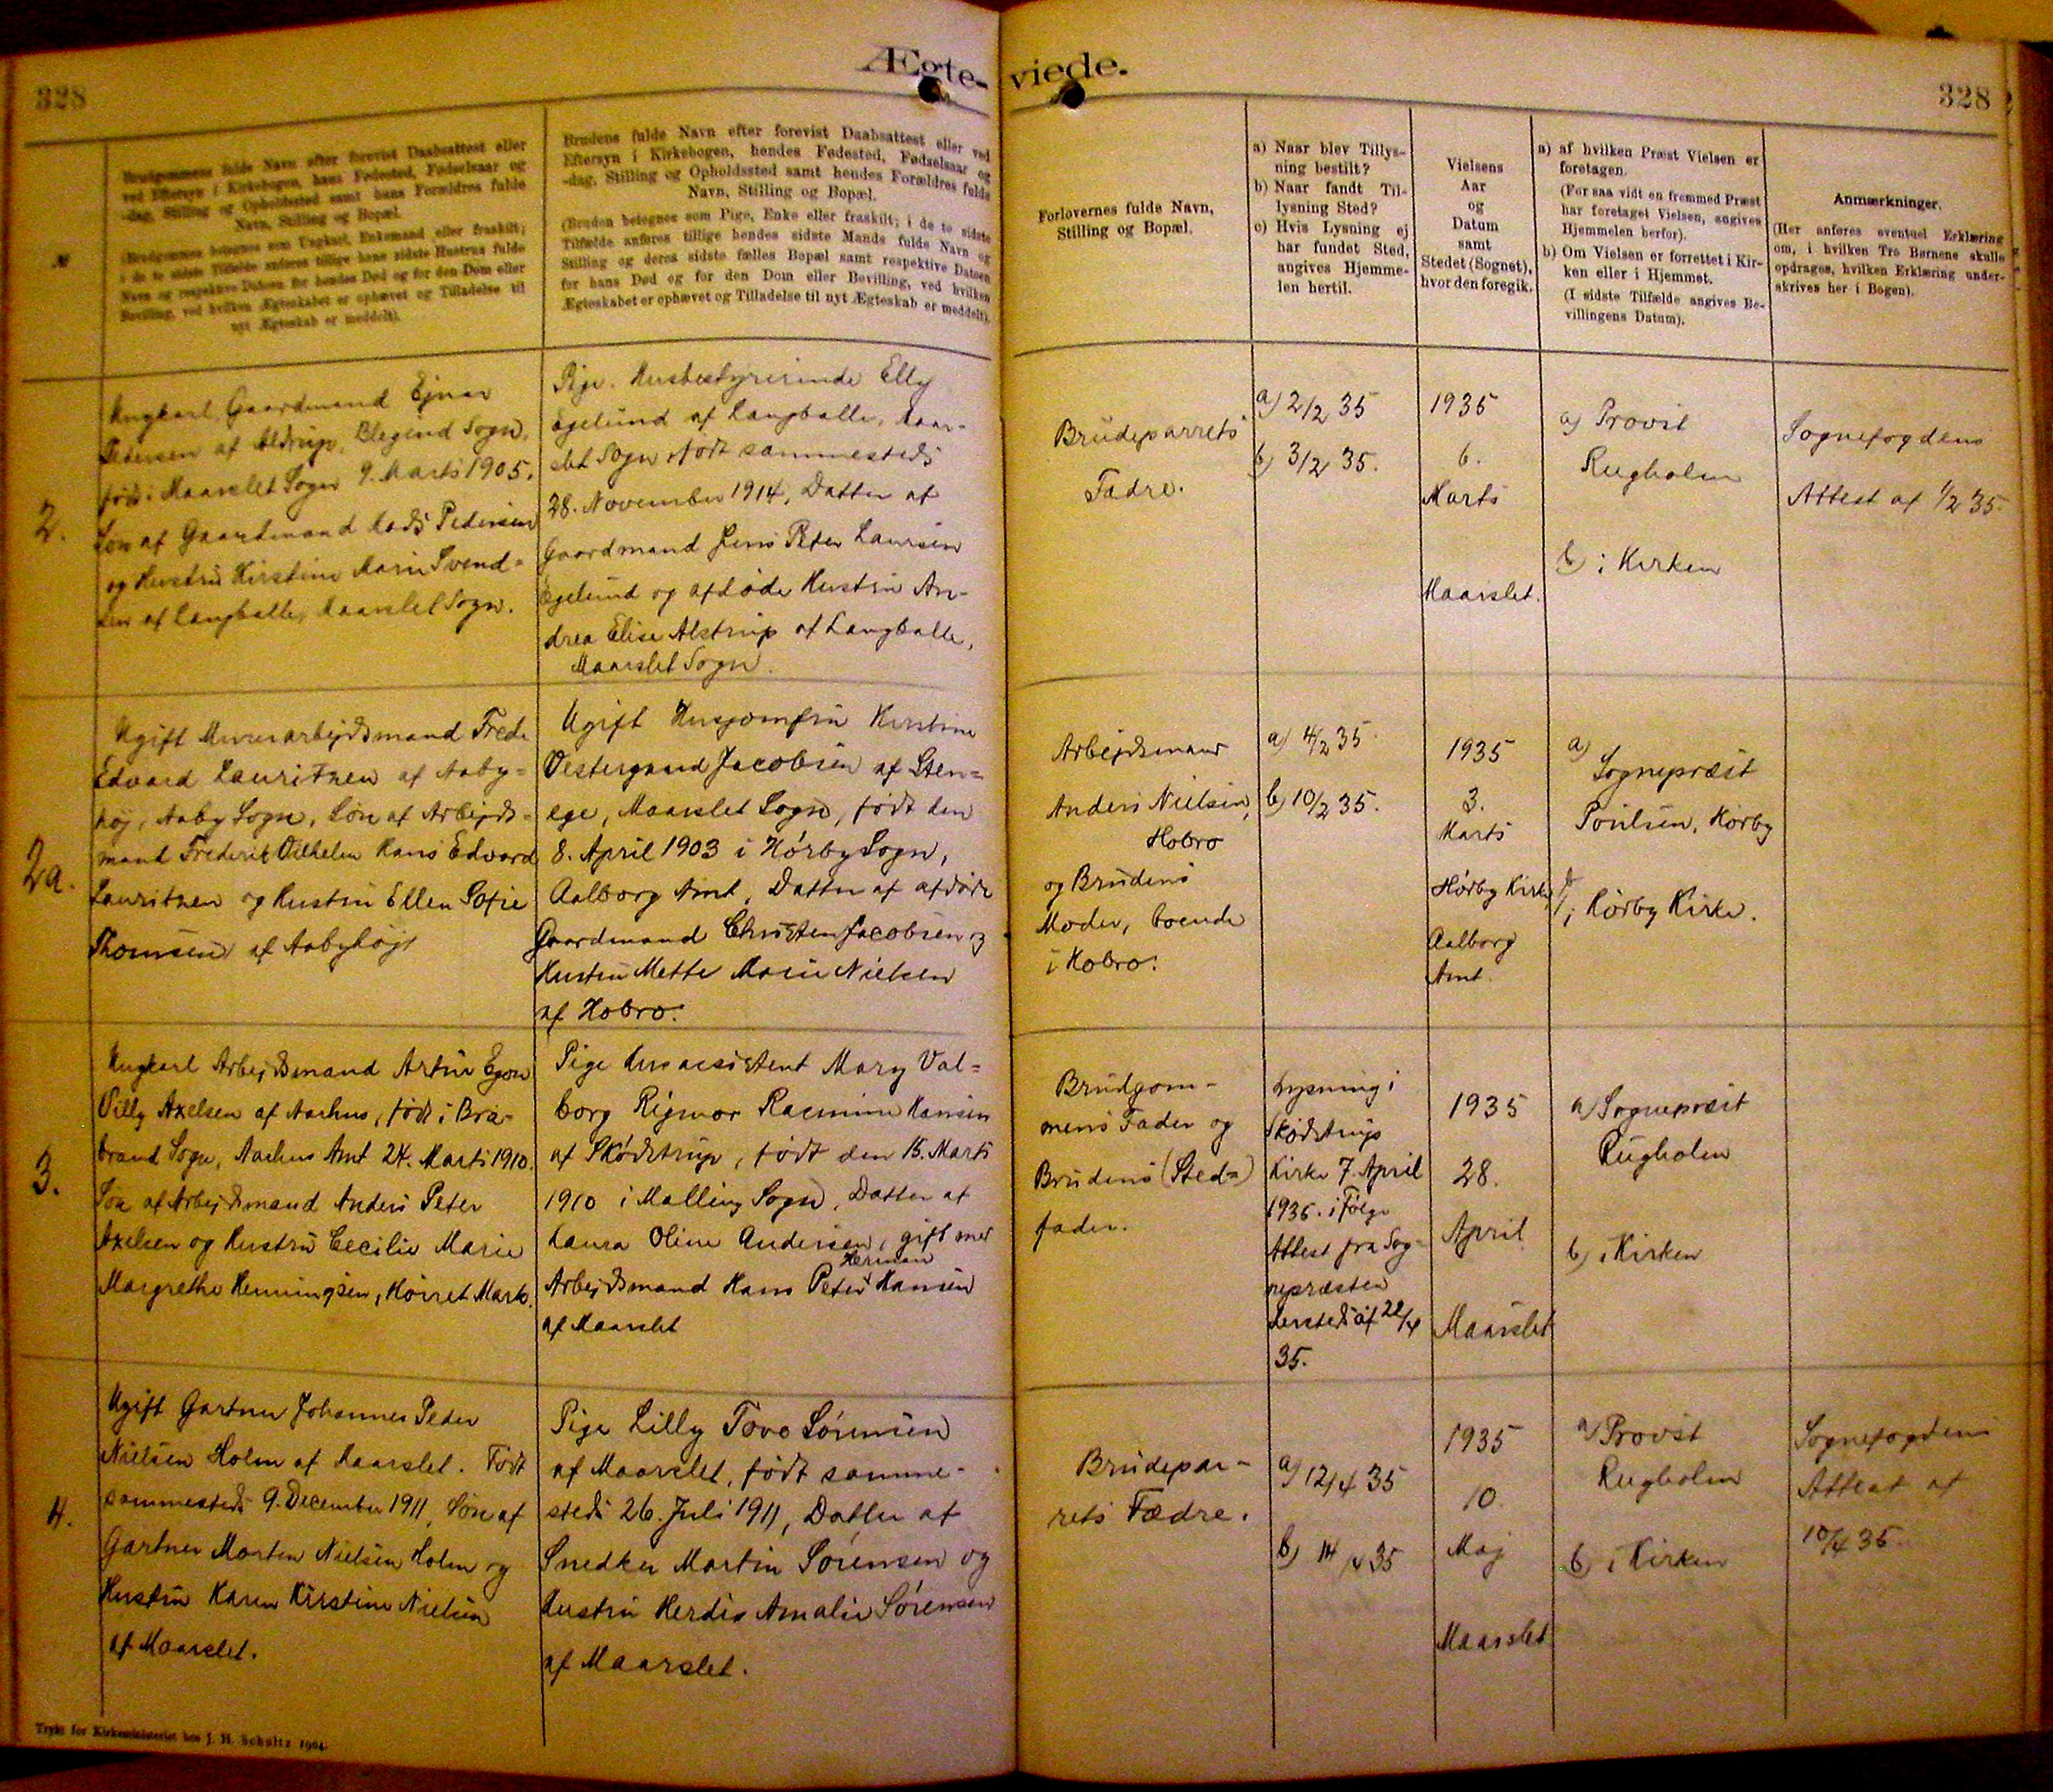 Ægte-viede.
328
328
№
Brudgommens fulde Navn efter forevist Daabsattest eller
ved Eftersyn i Kirkebogen, hans Fødested, Fødselsaar og
-dag, Stilling og Opholdssted samt hans Forældres fulde
Navn, Stilling og Bopæl.
(Brudgommen betegnes som Ungkarl, Enkemand eller fraskilt;
i de to sidste Tilfælde anføres tillige hans sidste Hustrus fulde
Navn og respektive Datoen for hendes Død og for den Dom eller
Bevilling, ved hvilken Ægteskabet er ophævet og Tilladelse til
nyt Ægteskab er meddelt).
Brudens fulde Navn efter forevist Daabsattest eller ved
Eftersyn i Kirkebogen, hendes Fødested, Fødselsaar og
-dag, Stilling og Opholdssted samt hendes Forældres fulde
Navn, Stilling og Bopæl.
(Bruden betegnes som Pige, Enke eller fraskilt; i de to sidste
Tilfælde anføres tillige hendes sidste Mands fulde Navn og
Stilling og deres sidste fælles Bopæl samt respektive Datoen
for hans Død og for den Dom eller Bevilling, ved hvilken
Ægteskabet er ophævet og Tilladelse til nyt Ægteskab er meddelt).
Forlovernes fulde Navn,
Stilling og Bopæl.
a) Naar blev Tillys-
ning bestilt?
b) Naar fandt Til-
lysning Sted?
c) Hvis Lysning ej
har fundet Sted,
angives Hjemme-
len hertil.
Vielsens
Aar
og
Datum
samt
Stedet (Sognet),
hvor den foregik.
a) af hvilken Præst Vielsen er
foretagen.
(For saa vidt en fremmed Præst
har foretaget Vielsen, angives
Hjemmelen herfor).
b) Om Vielsen er forrettet i Kir-
ken eller i Hjemmet.
(I sidste Tilfælde angives Be-
villingens Datum).
Anmærkninger.
(Her anføres eventuel Erklæring
om, i hvilken Tro Børnene skulle
opdrages, hvilken Erklæring under-
skrives her i Bogen).
2.
Ungkarl, Gaardmand Ejnar
Pedersen af Aldrup, Blegind Sogn,
født i Maarslet Sogn 9. Marts 1905.
Søn af Gaardmand Mads Pedersen
og Hustru Kirstine Marie Svend-
sen af Langballe, Maarslet Sogn.
Pige. Husbestyrerinde Elly
Egelund af Langballe, Maar-
slet Sogn, født sammesteds
28. November 1914, Datter af
Gaardmand Jens Peter Laursen
Egelund og afdøde Hustru An-
drea Elise Alstrup af Langballe,
Maarslet Sogn.
Brudeparrets
Fædre.
a) 2/2 35
b) 3/2 35.
1935
6.
Marts
Maarslet.
a) Provst
Rugholm
b) i Kirken
Sognefogdens
Attest af 1/2 35.
2a.
Ugift Murerarbejdsmand Frede
Edvard Lauritzen af Aaby-
høj, Aaby Sogn, Søn af Arbejds-
mand Frederik Vilhelm Hans Edvard
Lauritzen og Hustru Ellen Sofie
Thomsen af Aabyhøj
Ugift Husjomfru Kirstine
Vestergaard Jacobsen af Sten-
ege, Maarslet Sogn, født den
8. April 1903 i Hørby Sogn,
Aalborg Amt, Datter af afdøde
Gaardmand Christen Jacobsen og
Hustru Mette Marie Nielsen
af Hobro.
Arbejdsmand
Anders Nielsen,
Hobro
og Brudens
Moder, boende
i Hobro.
a) 4/2 35
b) 10/2 35.
1935
3.
Marts
Hørby Kirke
Aalborg
Amt.
a)
Sognepræst
Poulsen, Hørby
b) i Hørby Kirke.
3.
Ungkarl Arbejdsmand Artur Egon
Villy Axelsen af Aarhus, født i Bra-
brand Sogn, Aarhus Amt 24. Marts 1910.
Søn af Arbejdsmand Anders Peter
Axelsen og Hustru Cecilie Marie
Margrethe Henningsen, Mark.
Pige Husassistent Mary Val-
borg Rigmor Rasmine Hansen
af Skødstrup, født den 15. Marts
1910 i Malling Sogn, Datter af
Laura Oline Andersen, gift med
Arbejdsmand Hans Peter Herman Hansen
af Maarslet
Brudgom-
mens Fader og
Brudens (Sted-)
fader.
Lysning i
Skødstrup
Kirke 7. April
1935. i Følge
Attest fra Sog-
nepræsten
dersteds af 22/4
35.
1935
28.
April
Maarslet
a) Sognepræst
Rugholm
b) i Kirken
4.
Ugift Gartner Johannes Peder
Nielsen Holm af Maarslet. Født
sammesteds 9. December 1911, Søn af
Gartner Morten Nielsen Holm og
Hustru Karen Kirstine Nielsen
af Maarslet.
Pige Lilly Tove Sørensen
af Maarslet, født samme-
steds 26. Juli 1911, Datter af
Snedker Martin Sørensen og
Hustru Herdis Amalie Sørensen
af Maarslet.
Brudepar-
rets Fædre.
a) 12/4 35
b) 14/4 35
1935
10.
Maj
Maarslet
a) Provst
Rugholm
b) i Kirken
Sognefogdens
Attest af
10/4 35.
Trykt for Kirkeministeriet hos J. H. Schultz 1904.